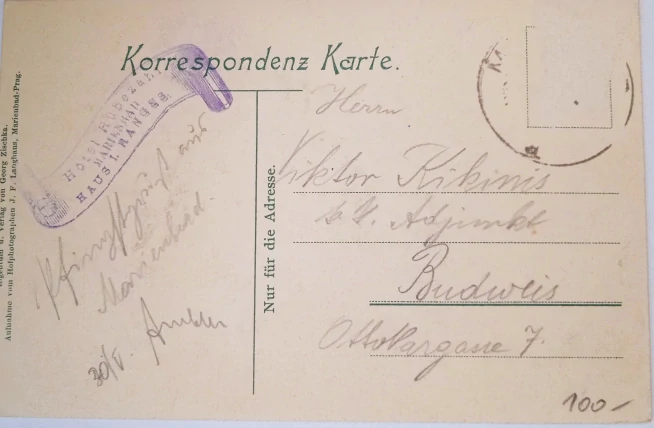 Korrespondenz Karte.
Hotel Rübezahl
MARIENBAD
HAUS I. RANGES.
Eigentum u. Verlag von Georg Zischka.
Aufnahme vom Hofphotographen J. F. Langhans, Marienbad-Prag.
Nur für die Adresse.
Pfingstgruß aus
Marienbad.
30/V.
Herrn
Viktor Kikinis
k. k. Adjunkt
Budweis
Ottokargasse 7.
100-